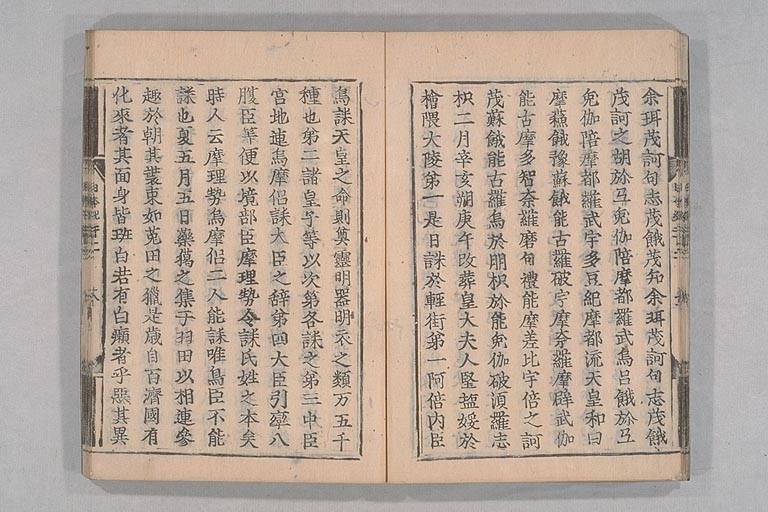 余珥茂訶句志茂餓茂知余珥茂訶句志茂餓
茂訶之胡於弖兔伽陪摩都羅武烏呂餓於弖
兔伽陪摩都羅武宇多豆紀摩都流天皇和曰
摩蘇餓豫蘇餓能古羅破宇摩奈羅摩辟武伽
能古摩多智奈羅磨句禮能摩差比宇倍之訶
茂蘇餓能古羅烏於朋枳於能兔伽破湏羅志
枳二月辛亥朔庚午改葬皇大夫人堅塩媛於
檜隈大陵第一是日誄於輕街第一阿倍内臣
鳥誄天皇之命則奠靈明器明衣之類万五千
種也第二諸皇子等以次第各誄之第三中臣
宮地連烏摩侶誄大臣之辞第四大臣引率八
腹臣等便以境部臣摩理勢令誄氏姓之本矣
時人云摩理勢烏摩侶二人能誄唯鳥臣不能
誄也夏五月五日藥獦之集于羽田以相連參
趣於朝其裝束如菟田之獵是歳自百濟國有
化來者其面身皆斑白若有白癩者乎惡其異